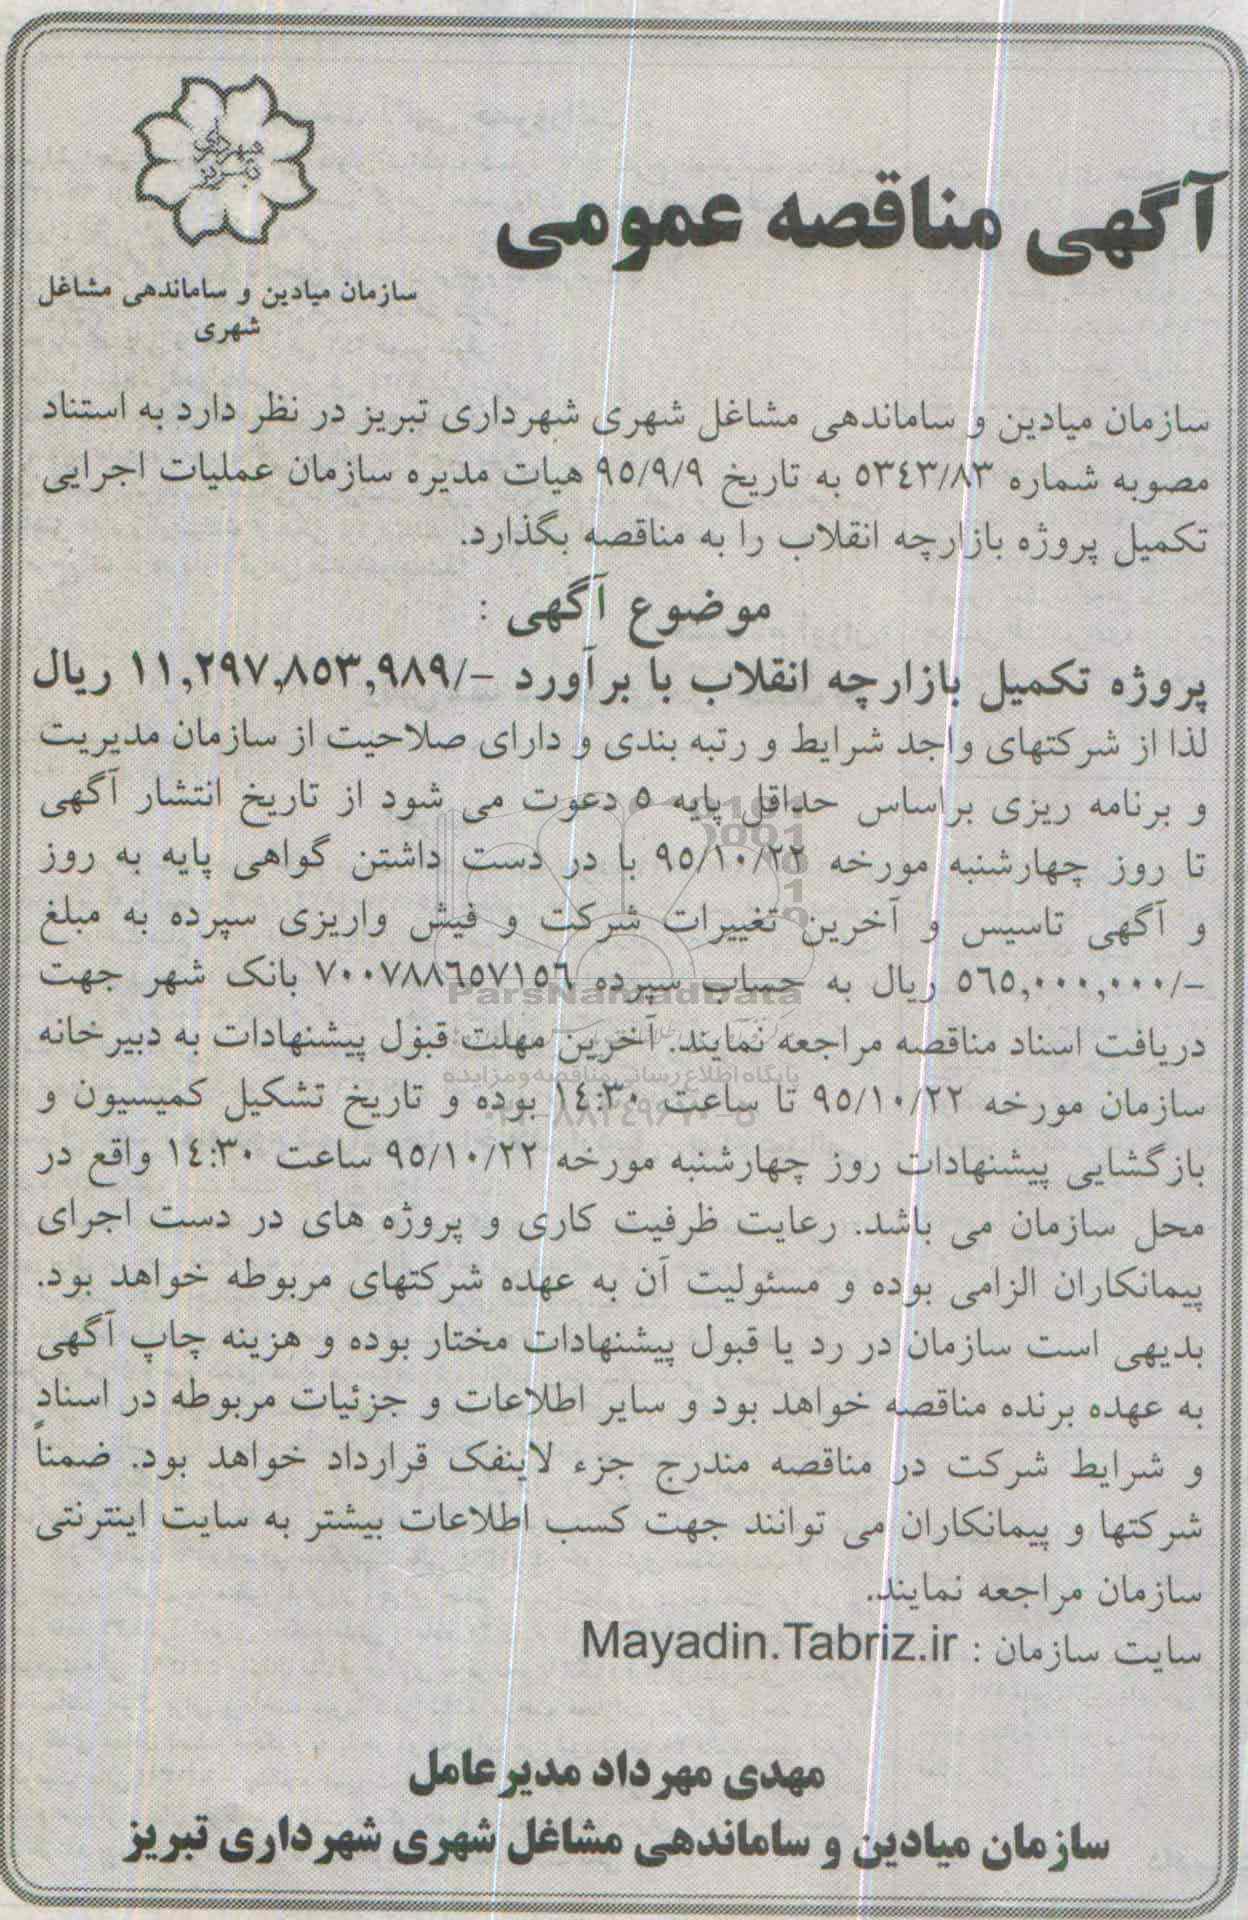 شهرداری
تبریز
آگهی مناقصه عمومی
سازمان میادین و ساماندهی مشاغل
شهری
سازمان میادین و ساماندهی مشاغل شهری شهرداری تبریز در نظر دارد به استناد
مصوبه شماره ۵۳۴۳/۸۳ به تاریخ ۹۵/۹/۹ هیات مدیره سازمان عملیات اجرایی
تکمیل پروژه بازارچه انقلاب را به مناقصه بگذارد.
موضوع آگهی :
پروژه تکمیل بازارچه انقلاب با برآورد -/۱۱,۲۹۷,۸۵۳,۹۸۹ ریال
لذا از شرکتهای واجد شرایط و رتبه بندی و دارای صلاحیت از سازمان مدیریت
و برنامه ریزی براساس حداقل پایه ۵ دعوت می شود از تاریخ انتشار آگهی
تا روز چهارشنبه مورخه ۹۵/۱۰/۲۲ با در دست داشتن گواهی پایه به روز
و آگهی تاسیس و آخرین تغییرات شرکت و فیش واریزی سپرده به مبلغ
-/۵۶۵,۰۰۰,۰۰۰ ریال به حساب سپرده ۷۰۰۷۸۸۶۵۷۱۵۶ بانک شهر جهت
دریافت اسناد مناقصه مراجعه نمایند. آخرین مهلت قبول پیشنهادات به دبیرخانه
سازمان مورخه ۹۵/۱۰/۲۲ تا ساعت ۱۴:۳۰ بوده و تاریخ تشکیل کمیسیون و
بازگشایی پیشنهادات روز چهارشنبه مورخه ۹۵/۱۰/۲۲ ساعت ۱۴:۳۰ واقع در
محل سازمان می باشد. رعایت ظرفیت کاری و پروژه های در دست اجرای
پیمانکاران الزامی بوده و مسئولیت آن به عهده شرکتهای مربوطه خواهد بود.
بدیهی است سازمان در رد یا قبول پیشنهادات مختار بوده و هزینه چاپ آگهی
به عهده برنده مناقصه خواهد بود و سایر اطلاعات و جزئیات مربوطه در اسناد
و شرایط شرکت در مناقصه مندرج جزء لاینفک قرارداد خواهد بود. ضمناً
شرکتها و پیمانکاران می توانند جهت کسب اطلاعات بیشتر به سایت اینترنتی
سازمان مراجعه نمایند.
سایت سازمان : Mayadin.Tabriz.ir
مهدی مهرداد مدیرعامل
سازمان میادین و ساماندهی مشاغل شهری شهرداری تبریز
ParsNamadData
پایگاه اطلاع رسانی مناقصه و مزایده